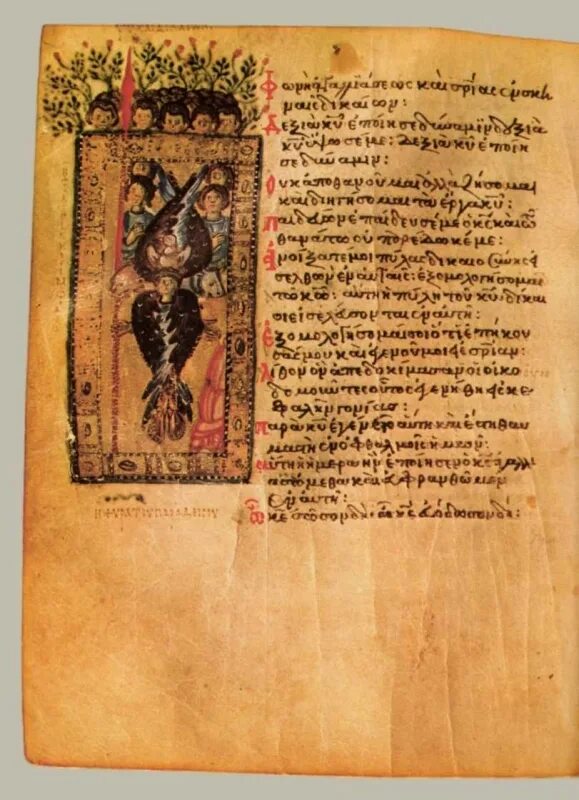 Φωνὴ ἀγαλλιάσεως καὶ σρίας ἐν σκη
ναῖς δικαίων:
Δεξιὰ κυ ἐποίησε δύναμιν δεξιὰ
κυ ὕψωσέ με: δεξιὰ κυ ἐποίη
σε δύναμιν:
Οὐκ ἀποθανοῦμαι ἀλλὰ ζήσομαι
καὶ διηγήσομαι τὰ ἔργα κυ:
Παιδεύων ἐπαίδευσέ με ὁ κς καὶ τῷ
θανάτῳ οὐ παρέδωκέ με:
Ἀνοίξατέ μοι πύλας δικαιοσύνης εἰ
σελθὼν ἐν αὐταῖς ἐξομολογήσομαι
τῷ κω: αὕτη ἡ πύλη τοῦ κυ δίκαι
οι εἰσελεύσονται ἐν αὐτῇ:
Ἐξομολογήσομαί σοι ὅτι ἐπήκου
σάς μου καὶ ἐγένου μοι εἰς σρίαν:
Λίθον ὃν ἀπεδοκίμασαν οἱ οἰκο
δομοῦντες οὗτος ἐγενήθη εἰς κε
φαλὴν γωνίας:
Παρὰ κυ ἐγένετο αὕτη καὶ ἔστι θαυ
μαστὴ ἐν ὀφθαλμοῖς ἡμῶν:
Αὕτη ἡ ἡμέρα ἣν ἐποίησεν ὁ κς ἀγαλλι
ασώμεθα καὶ εὐφρανθῶμεν
ἐν αὐτῇ:
Ὦ κε σῶσον δή· ὦ κε εὐόδωσον δή: